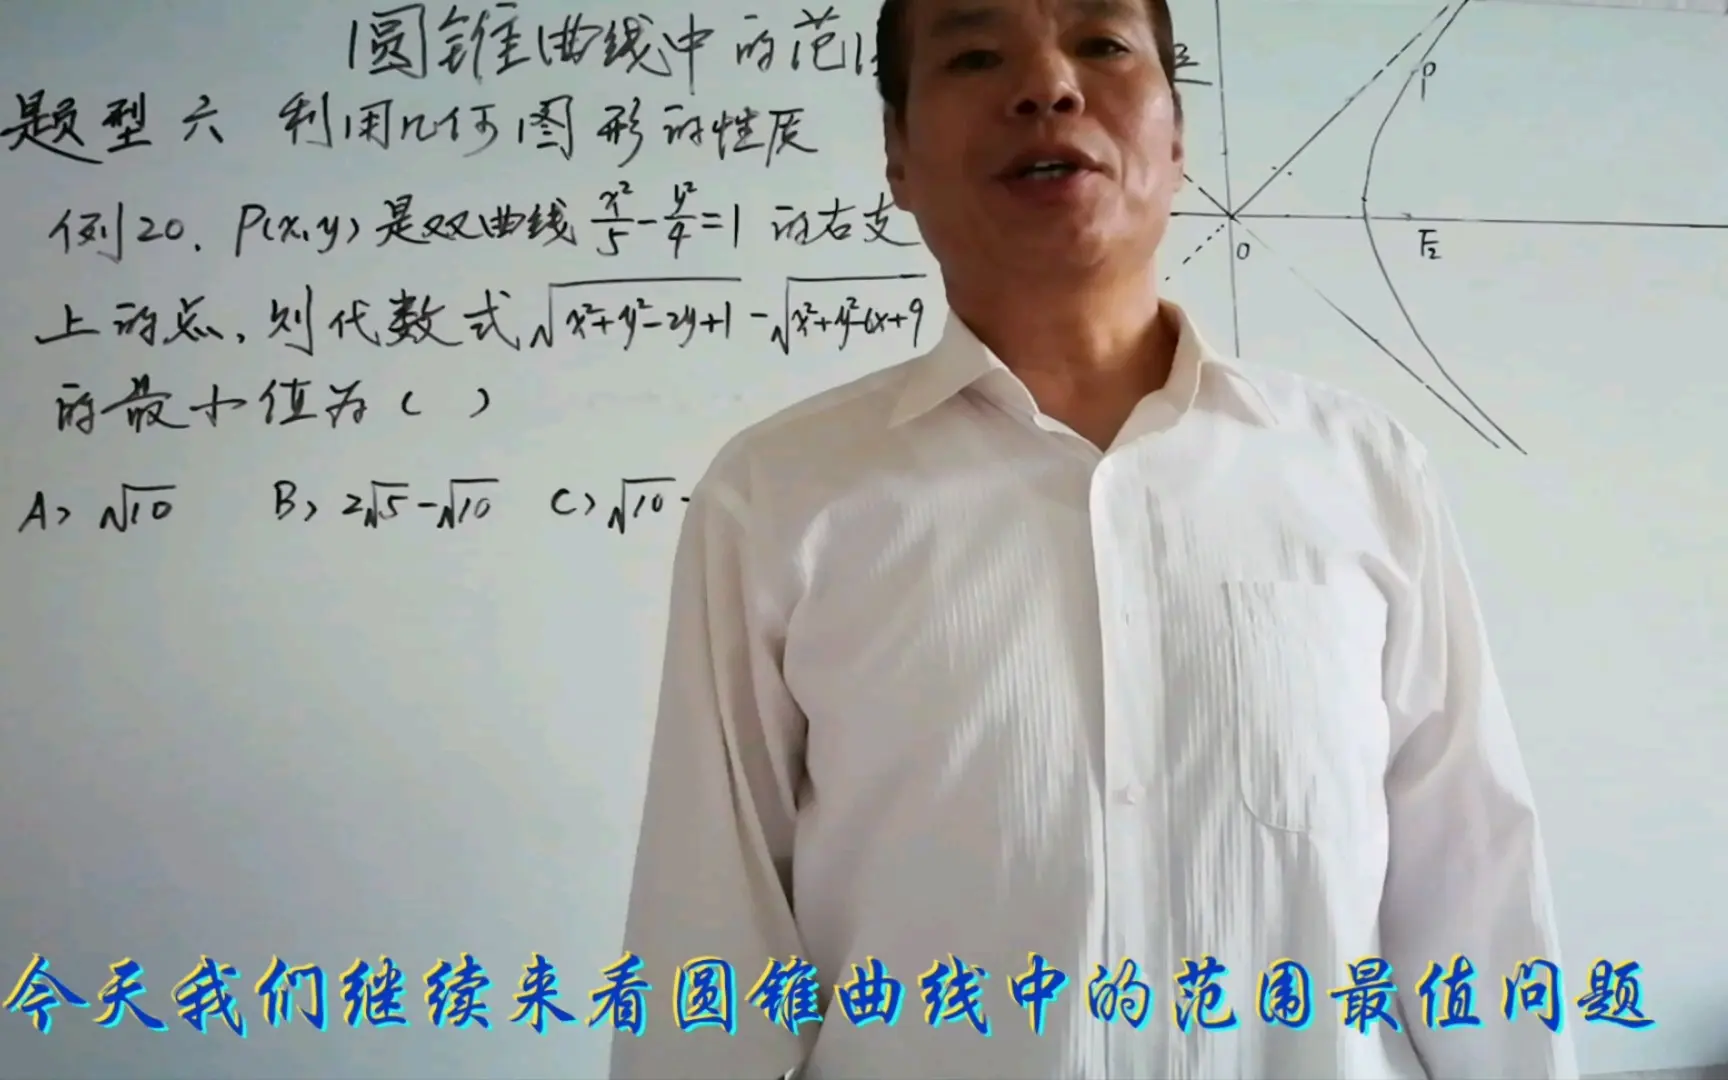 圆锥曲线中的范
题型六 利用几何图形的性质
例20. P(x,y)是双曲线 x²/5 - y²/4 = 1 的右支
上的点,则代数式 √(x²+y²-2y+1) - √(x²+y²-6x+9)
的最小值为( )
A> √10 B> 2√5-√10 C> √10-
P
O
F₂
今天我们继续来看圆锥曲线中的范围最值问题